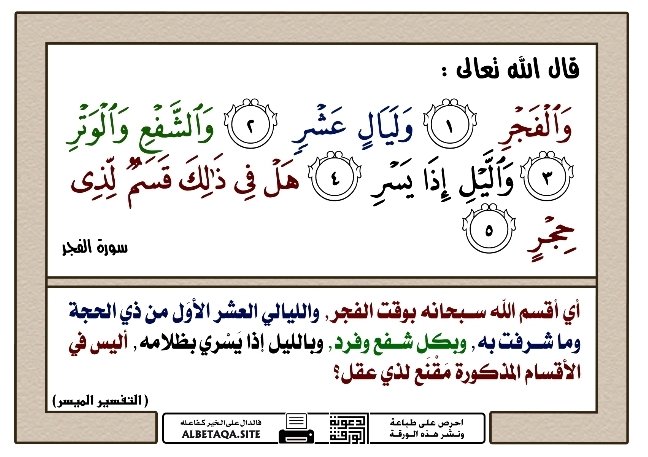 قال الله تعالى :
وَٱلْفَجْرِ ١ وَلَيَالٍ عَشْرٍ ٢ وَٱلشَّفْعِ وَٱلْوَتْرِ
٣ وَٱلَّيْلِ إِذَا يَسْرِ ٤ هَلْ فِى ذَٰلِكَ قَسَمٌ لِّذِى
حِجْرٍ ٥
سورة الفجر
أي أقسم الله سبحانه بوقت الفجر, والليالي العشر الأوَل من ذي الحجة
وما شرفت به, وبكل شفع وفرد, وبالليل إذا يَسْري بظلامه, أليس في
الأقسام المذكورة مَقْنَع لذي عقل؟
(التفسير الميسر)
احرص على طباعة
ونشر هذه الورقة
لدعوية
الورقة
فالدال على الخير كفاعله
ALBETAQA.SITE